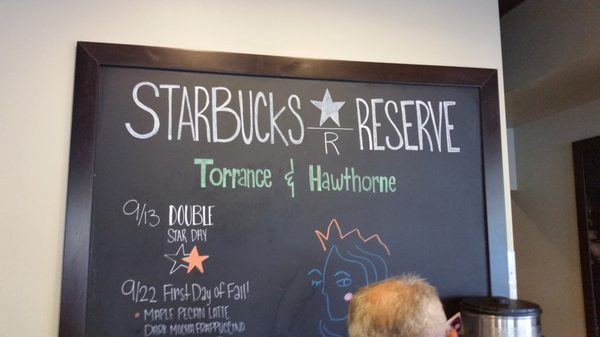 STARBUCKS RESERVE
R
Torrance & Hawthorne
9/13 DOUBLE
STAR DAY
9/22 First Day of Fall!
• MAPLE PECAN LATTE
DARK MOCHA FRAPPUCCINO